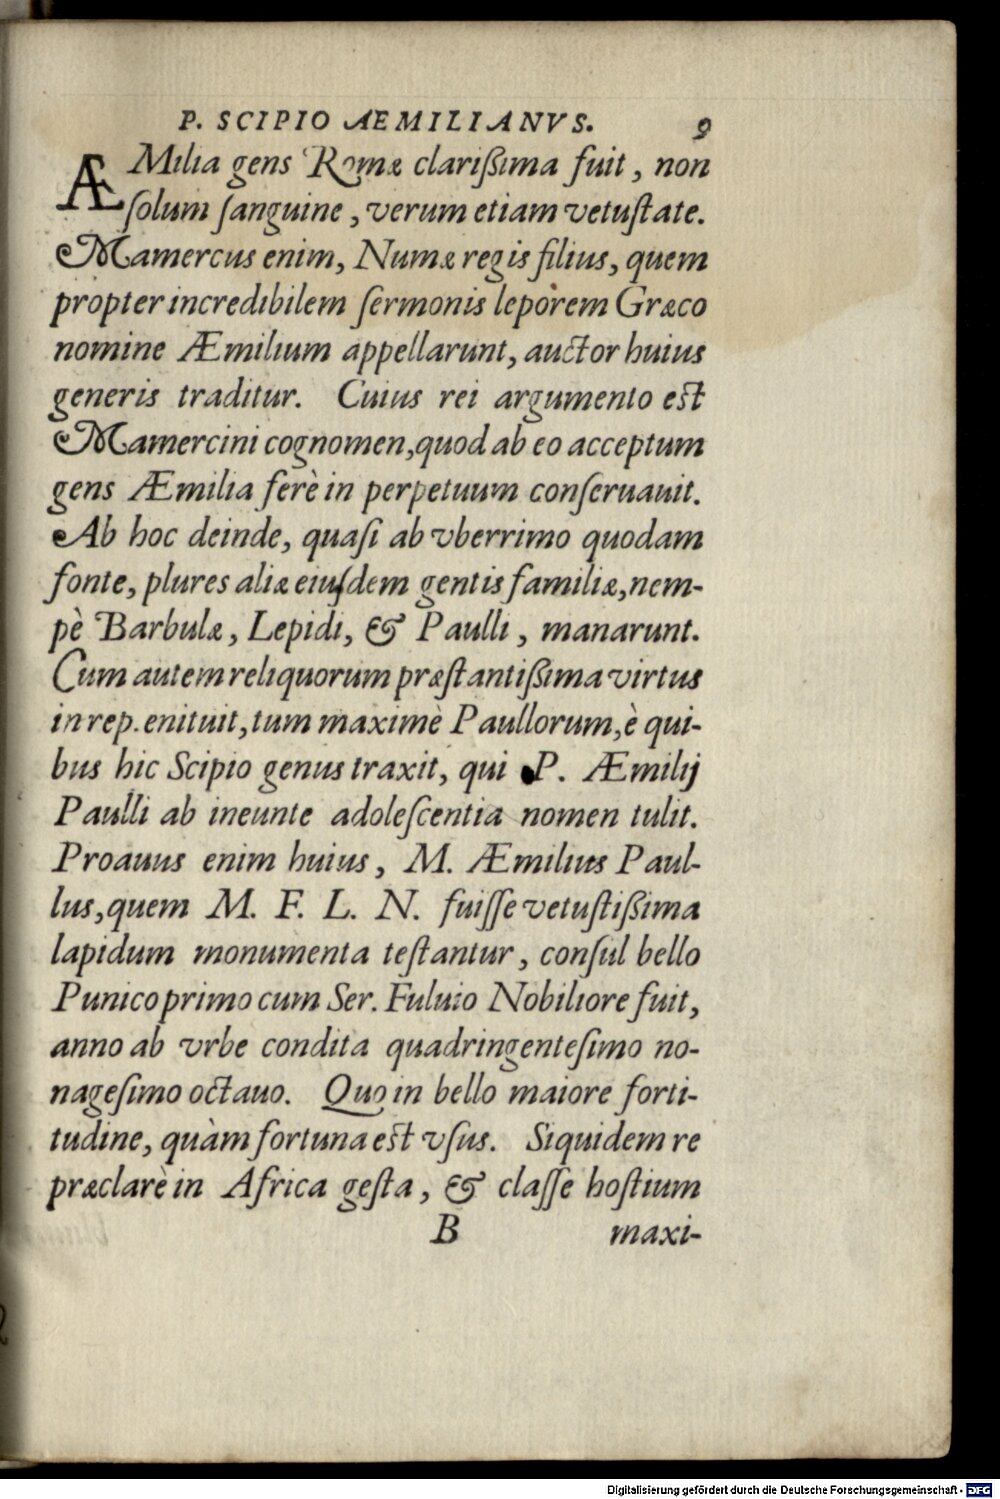 P. SCIPIO AEMILIANVS. 9
ÆMilia gens Romæ clarißima fuit, non
ſolum ſanguine, verum etiam vetuſtate.
Mamercus enim, Numæ regis filius, quem
propter incredibilem ſermonis leporem Græco
nomine Æmilium appellarunt, auctor huius
generis traditur. Cuius rei argumento est
Mamercini cognomen, quod ab eo acceptum
gens Æmilia ferè in perpetuum conſeruauit.
Ab hoc deinde, quaſi ab vberrimo quodam
fonte, plures aliæ eiuſdem gentis familiæ, nem-
pè Barbulæ, Lepidi, & Paulli, manarunt.
Cum autem reliquorum præſtantißima virtus
in rep. enituit, tum maximè Paullorum, è qui-
bus hic Scipio genus traxit, qui P. Æmilij
Paulli ab ineunte adoleſcentia nomen tulit.
Proauus enim huius, M. Æmilius Paul-
lus, quem M. F. L. N. fuiſſe vetuſtißima
lapidum monumenta teſtantur, conſul bello
Punico primo cum Ser. Fuluio Nobiliore fuit,
anno ab vrbe condita quadringenteſimo no-
nageſimo octauo. Quo in bello maiore forti-
tudine, quàm fortuna est vſus. Siquidem re
præclarè in Africa geſta, & claſſe hoſtium
B maxi-
Digitalisierung gefördert durch die Deutsche Forschungsgemeinschaft - DFG